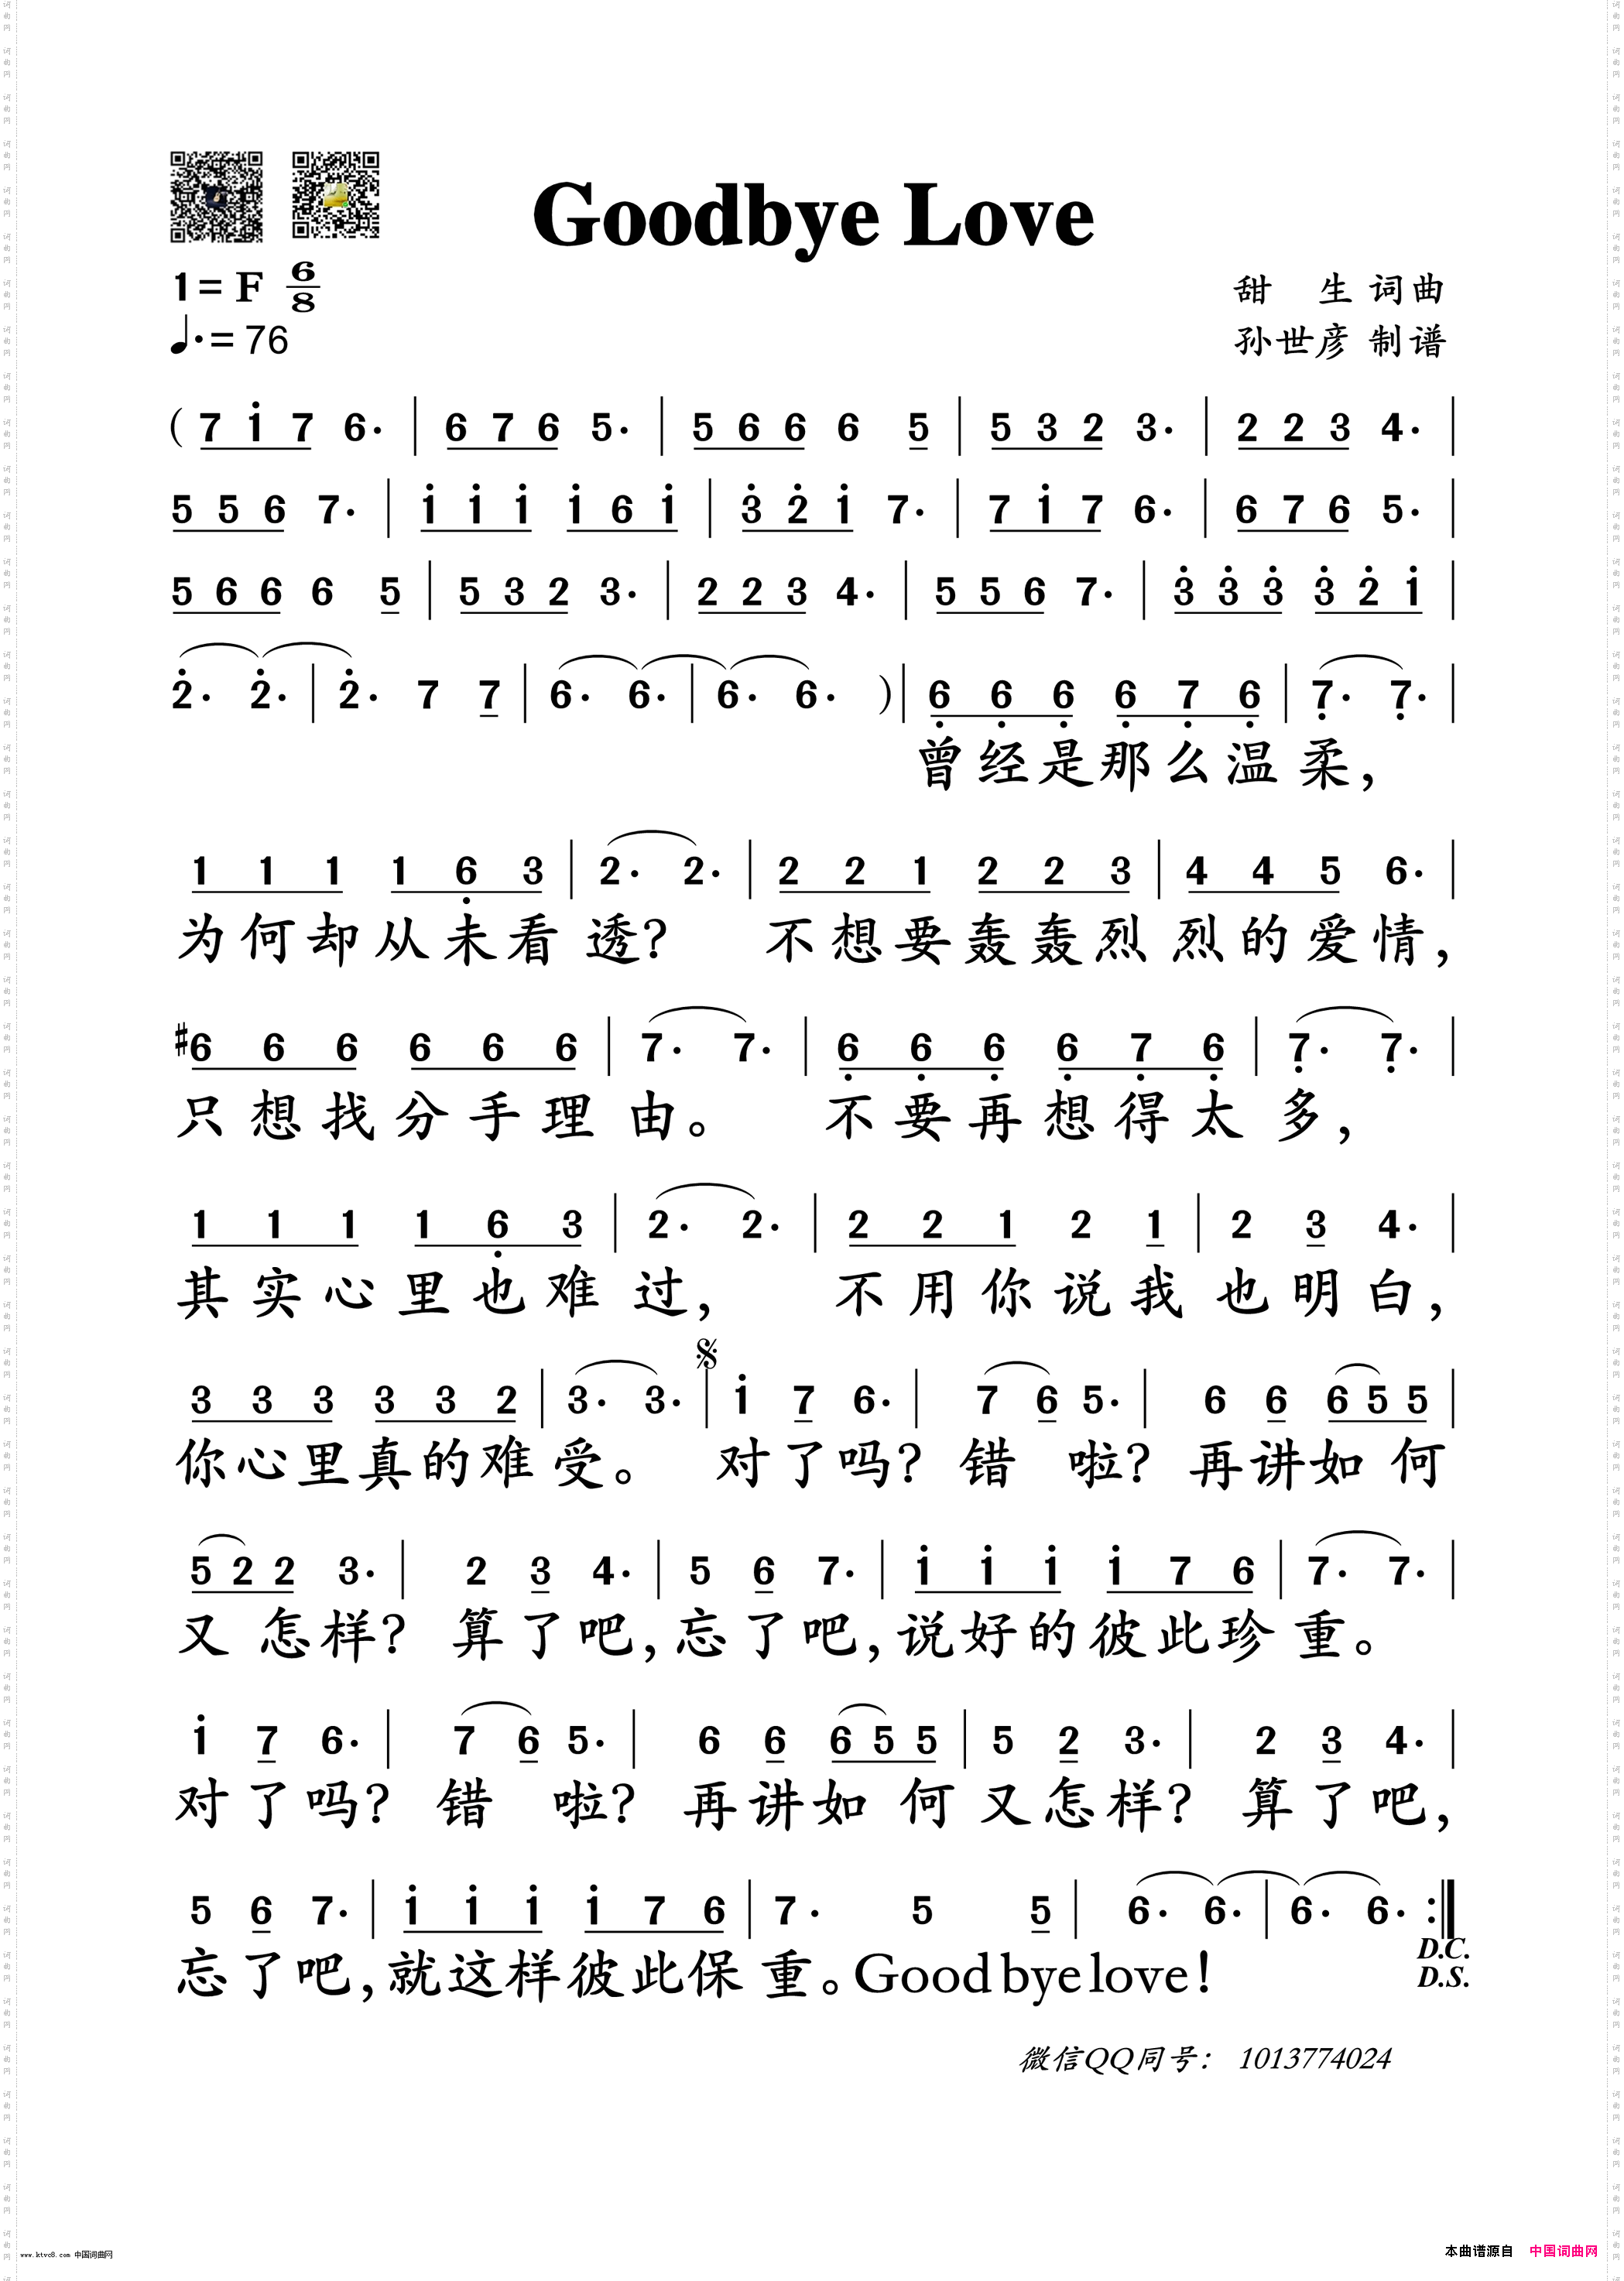 Goodbye Love
1= F 6/8
甜 生 词曲
♩.= 76
孙世彦 制谱
( 7 i̇ 7 6. | 6 7 6 5. | 5 6 6 6 5 | 5 3 2 3. | 2 2 3 4. |
5 5 6 7. | i̇ i̇ i̇ i̇ 6 i̇ | 3̇ 2̇ i̇ 7. | 7 i̇ 7 6. | 6 7 6 5. |
5 6 6 6 5 | 5 3 2 3. | 2 2 3 4. | 5 5 6 7. | 3̇ 3̇ 3̇ 3̇ 2̇ i̇ |
2̇. 2̇. | 2̇. 7 7 | 6. 6. | 6. 6. ) | 6̣ 6̣ 6̣ 6̣ 7̣ 6̣ | 7̣. 7̣. |
曾经是那么温柔,
1 1 1 1 6̣ 3 | 2. 2. | 2 2 1 2 2 3 | 4 4 5 6. |
为何却从未看透? 不想要轰轰烈烈的爱情,
#6 6 6 6 6 6 | 7. 7. | 6̣ 6̣ 6̣ 6̣ 7̣ 6̣ | 7̣. 7̣. |
只想找分手理由。 不要再想得太多,
1 1 1 1 6̣ 3 | 2. 2. | 2 2 1 2 1 | 2 3 4. |
其实心里也难过, 不用你说我也明白,
3 3 3 3 3 2 | 3. 3. | 𝄋 i̇ 7 6. | 7 6 5. | 6 6 6 5 5 |
你心里真的难受。 对了吗? 错 啦? 再讲如 何
5 2 2 3. | 2 3 4. | 5 6 7. | i̇ i̇ i̇ i̇ 7 6 | 7. 7. |
又 怎样? 算了吧, 忘了吧, 说好的彼此珍重。
i̇ 7 6. | 7 6 5. | 6 6 6 5 5 | 5 2 3. | 2 3 4. |
对了吗? 错 啦? 再讲如 何 又怎样? 算了吧,
5 6 7. | i̇ i̇ i̇ i̇ 7 6 | 7. 5 5 | 6. 6. | 6. 6. :‖
D.C.
D.S.
忘了吧, 就这样彼此保重。Good bye love!
微信QQ同号: 1013774024
www.ktvc8.com 中国词曲网
本曲谱源自 中国词曲网